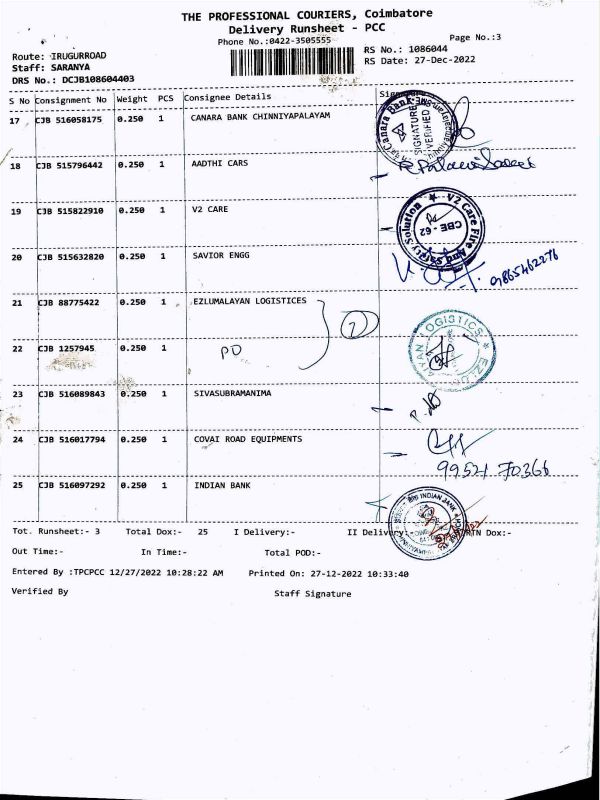 THE PROFESSIONAL COURIERS, Coimbatore
Delivery Runsheet - PCC
Phone No.:0422-3505555
Page No.:3
Route: IRUGURROAD
RS No.: 1086044
Staff: SARANYA
RS Date: 27-Dec-2022
DRS No.: DCJB108604403
S No Consignment No Weight PCS Consignee Details Signature
17 CJB 516058175 0.250 1 CANARA BANK CHINNIYAPALAYAM
Canara Bank
SIGNATURE
VERIFIED
18 CJB 515796442 0.250 1 AADTHI CARS
19 CJB 515822910 0.250 1 V2 CARE
V2 Care Fire And Safety Solution
CBE - 62
20 CJB 515632820 0.250 1 SAVIOR ENGG
9865462276
21 CJB 88775422 0.250 1 EZLUMALAYAN LOGISTICES
2
22 CJB 1257945 0.250 1 PD
LOGISTICS
23 CJB 516089843 0.250 1 SIVASUBRAMANIMA
24 CJB 516017794 0.250 1 COVAI ROAD EQUIPMENTS
99521 70366
25 CJB 516097292 0.250 1 INDIAN BANK
INDIAN BANK
Tot. Runsheet:- 3 Total Dox:- 25 I Delivery:- II Delivery:- RTN Dox:-
Out Time:- In Time:- Total POD:-
Entered By :TPCPCC 12/27/2022 10:28:22 AM Printed On: 27-12-2022 10:33:40
Verified By Staff Signature